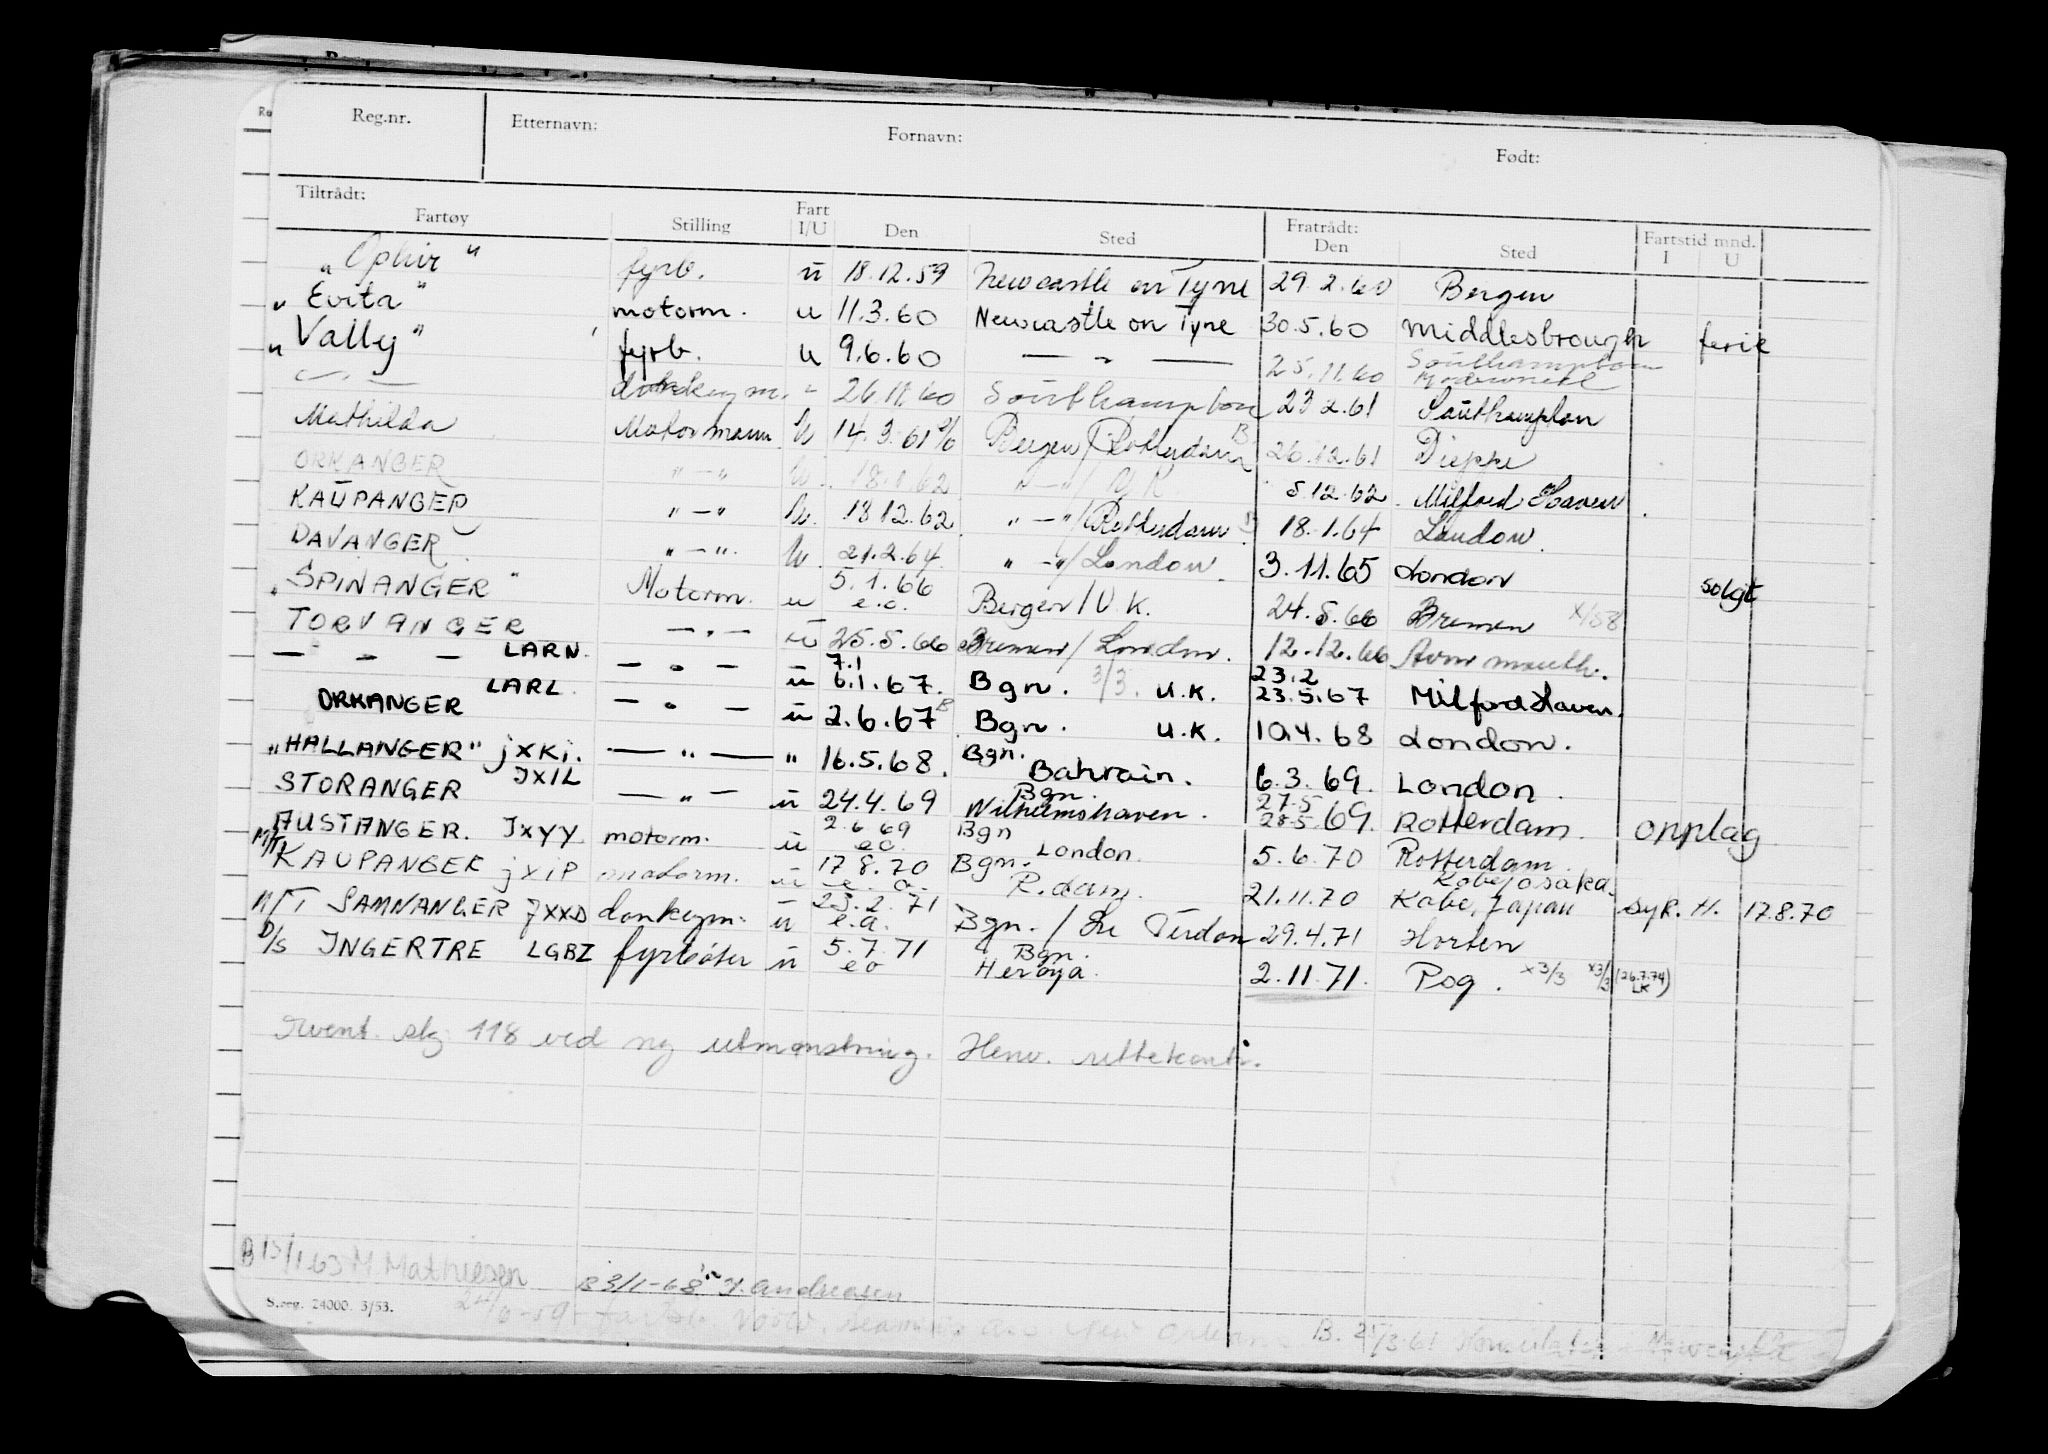 Reg.nr. Etternavn: Fornavn: Født:
Tiltrådt: Fratrådt:
Fartøy Stilling Fart I/U Den Sted Den Sted Fartstid mnd. I U
"Ophir" fyrb. u 18.12.59 Newcastle on Tyne 29.2.60 Bergen
"Evita" motorm. u 11.3.60 Newcastle on Tyne 30.5.60 Middlesbrough ferie
"Vally" fyrb. u 9.6.60 — " — 25.11.60 Southampton
— " — donkeym. " 26.11.60 Southampton 23 2.61 Southampton
Mathilda Motormann u 14.3.61 Bergen/Rotterdam B 26.12.61 Dieppe
ORKANGER " — " u. 18.1.62 " — "/ U K 5.12.62. Milford Haven
KAUPANGER " — " u. 13 12.62 " — "/Rotterdam 18.1.64 London
DAVANGER " — ". u. 21.2.64. " — "/London. 3.11.65 London solgt
"SPINANGER" Motorm. u 5.1.66 e.o. Bergen/U.K. 24.5.66 Bremen
TORVANGER — " — u 25.5.66 Bremen/London. 12.12.66 Avonmouth.
— " — LARN. — " — u 7.1 6.1.67. Bgn. 3/3. U.K. 23.2 23.5.67 Milford Haven.
ORKANGER LARL. — " — u 2.6.67 B Bgn. U.K. 10.4.68 London.
"HALLANGER" jxKi. — " — " 16.5.68. Bgn. Bahrain. 6.3.69. London.
STORANGER JXIL — " — u 24.4.69 Bgn. Wilhelmshaven. 27.5 28.5.69. Rotterdam. opplag
M/T AUSTANGER. JXYY motorm. u 2.6 69 eo. Bgn London. 5.6.70 Rotterdam
KAUPANGER jxiP motorm. u 17 8.70 e.o. Bgn. R.dam. 21.11.70 Kobe/Osaka. Kobe, Japan syk. H. 17.8.70
M/T SAMNANGER JXXD donkeym. u 23.2.71 e.a. Bgn./Le Verdon 29.4.71 Horten
D/S INGERTRE LGBZ fyrbøter u 5.7.71 eo Bgn. Herøya. 2.11.71. Pog. x3/3 x3/3 (26.7.74 LK)
Event. skj 118 ved ny utmønstring. Henv. rettekont.
B 15/1 63 M. Mathiesen B 3/1-68 Y. Andreasen
S.reg. 24000. 3/53.